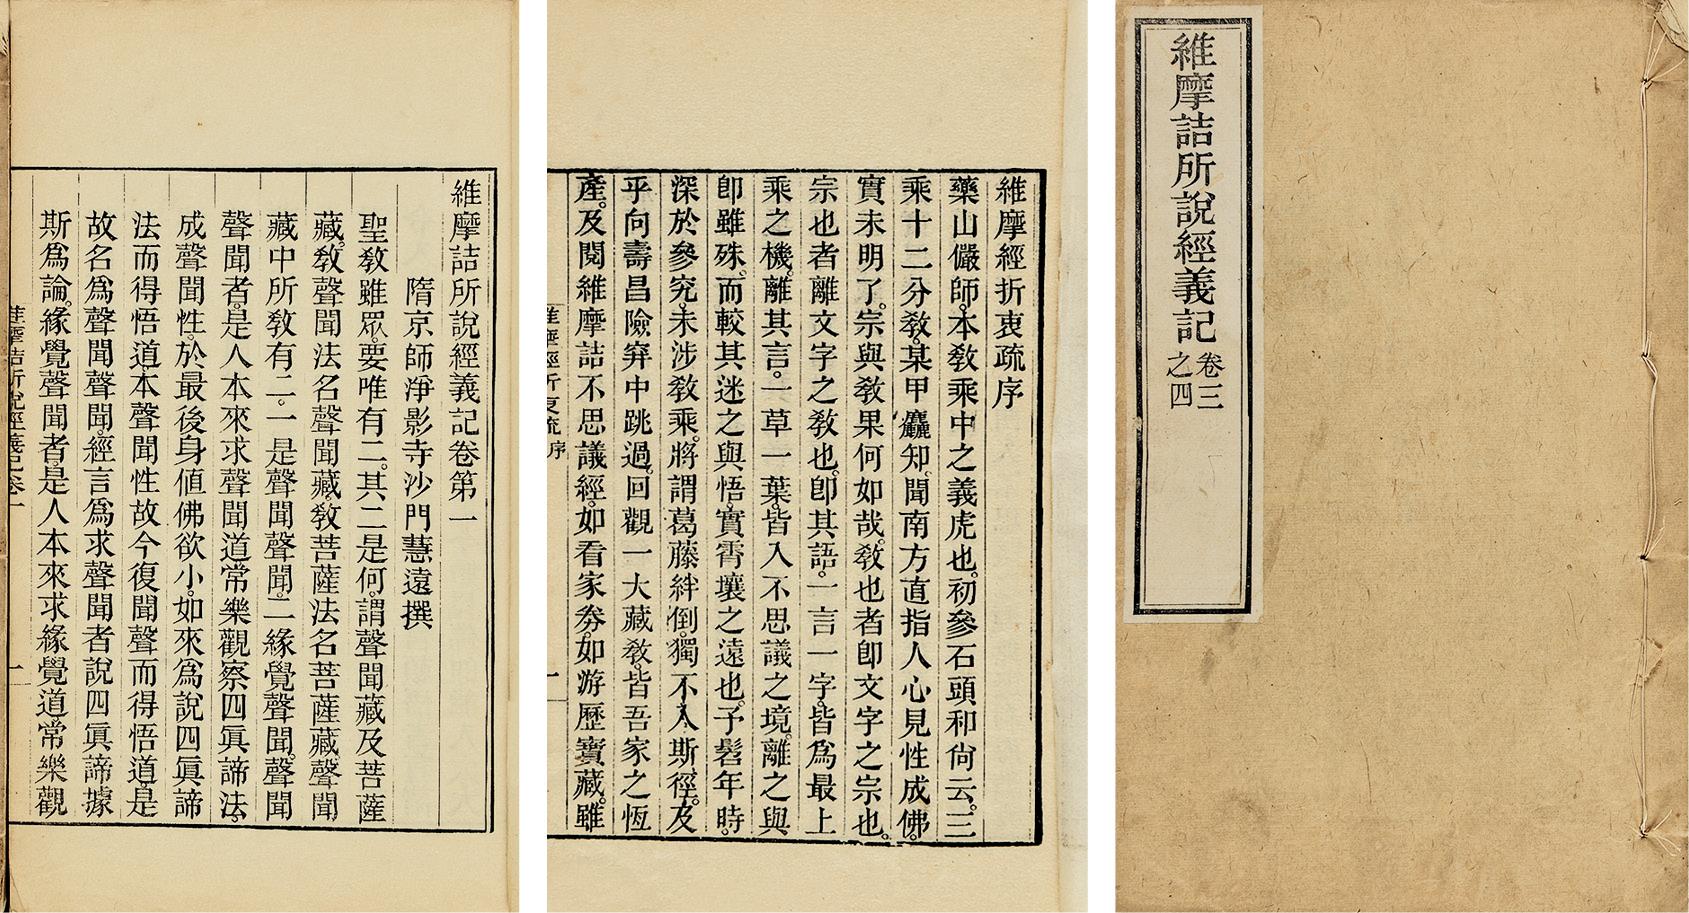 維摩詰所說經義記卷三
之四
維摩經折衷疏序
藥山儼師。本敎乘中之義虎也。初參石頭和尙云。三
乘十二分敎。某甲麤知。聞南方直指人心見性成佛。
實未明了。宗與敎果何如哉。敎也者卽文字之宗也。
宗也者離文字之敎也。卽其語。一言一字。皆爲最上
乘之機。離其言。一草一葉。皆入不思議之境。離之與
卽雖殊。而較其迷之與悟。實霄壤之遠也。予髫年時。
深於參究。未涉敎乘。將謂葛藤絆倒。獨不入斯徑。及
乎向壽昌險穽中跳過。回觀一大藏敎。皆吾家之恆
產。及閱維摩詰不思議經。如看家劵。如游歷寶藏。雖
維摩經折衷疏 序
一
維摩詰所說經義記卷第一
隋京師淨影寺沙門慧遠撰
聖敎雖眾。要唯有二。其二是何。謂聲聞藏及菩薩
藏。敎聲聞法名聲聞藏。敎菩薩法名菩薩藏。聲聞
藏中所敎有二。一是聲聞聲聞。二緣覺聲聞。聲聞
聲聞者。是人本來求聲聞道常樂觀察四眞諦法。
成聲聞性。於最後身値佛欲小。如來爲說四眞諦
法而得悟道。本聲聞性故今復聞聲而得悟道。是
故名爲聲聞聲聞。經言爲求聲聞者說四眞諦據
斯爲論。緣覺聲聞者。是人本來求緣覺道常樂觀
維摩詰所說經義記卷一
一